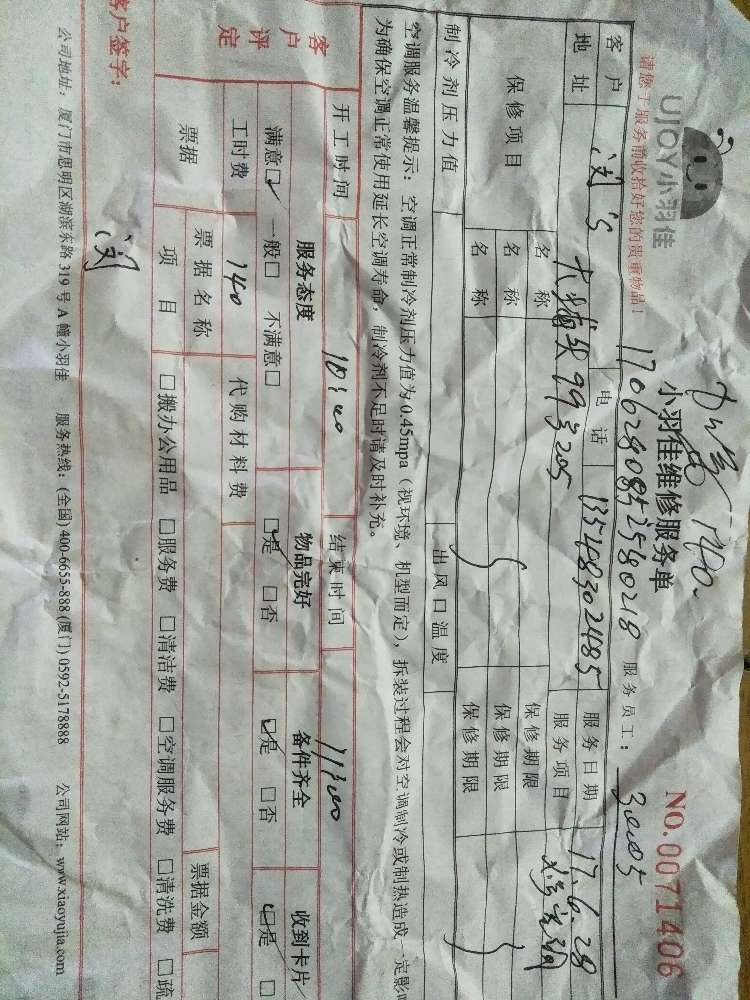 UJOY小羽佳
请您于服务前收拾好您的贵重物品！
小羽佳维修服务单
NO.0071406
1706280852580218
服务员工：
客户
电话 13548302485
服务日期 17.6.28
地址 99号205
服务项目
保修项目
名称 保修期限
名称 保修期限
名称 保修期限
制冷剂压力值 出风口温度
空调服务温馨提示：空调正常制冷剂压力值为0.45mpa（视环境、机型而定），拆装过程会对空调制冷或制热造成一定影响
为确保空调正常使用延长空调寿命，制冷剂不足时请及时补充。
开工时间 10:00 结束时间 11:00
客户评定
服务态度 物品完好 备件齐全 收到卡片
满意☑ 一般□ 不满意□ ☑是 □否 ☑是 □否 ☑是 □
工时费 140 代购材料费
票据 票据名称 票据金额
项目 □搬办公用品 □服务费 □清洁费 □空调服务费 □清洗费 □疏
客户签字：
公司地址：厦门市思明区湖滨东路319号A幢小羽佳 服务热线：(全国)400-6655-888(厦门)0592-5178888 公司网站：www.xiaoyujia.com